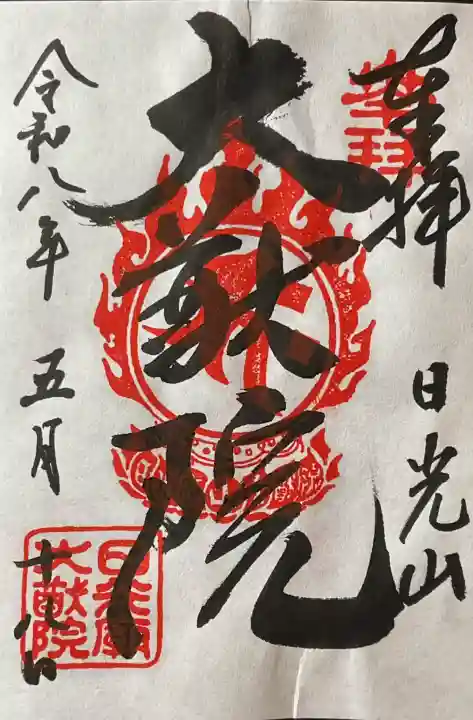 奉拝 日光山
大猷院
令和八年 五月 十八日
奉拝
日光廟
大猷院